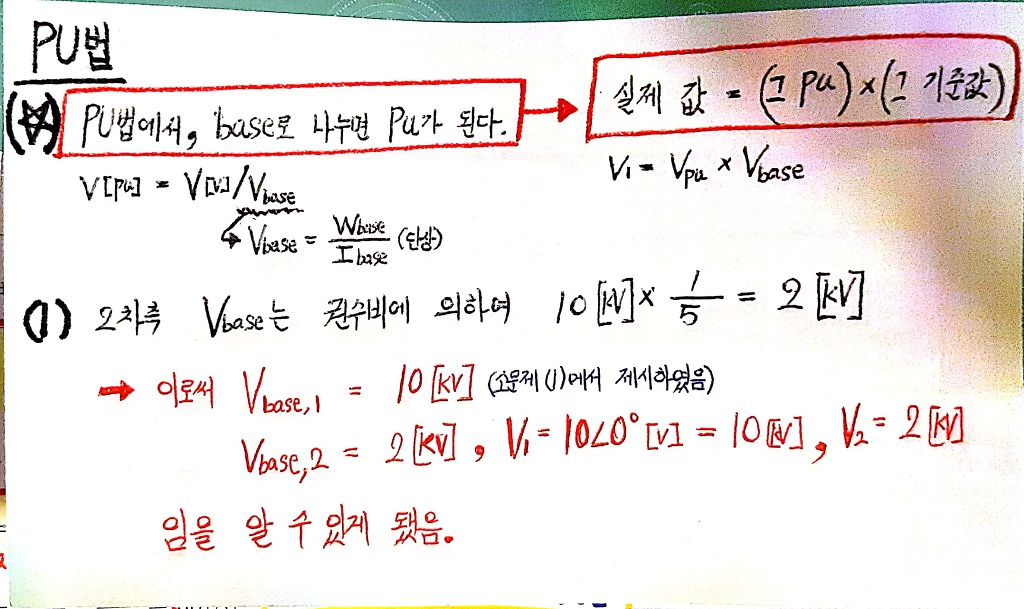 PU법
(☆) PU법에서, base로 나누면 Pu가 된다. → 실제 값 = (그 Pu) × (그 기준값)
V[pu] = V[v]/Vbase
V₁ = Vpu × Vbase
↳ Vbase = Wbase/Ibase (단상)
(1) 2차측 Vbase는 권수비에 의하여 10[kV] × 1/5 = 2[kV]
➡ 이로써 Vbase,1 = 10[kV] (소문제(1)에서 제시하였음)
Vbase,2 = 2[kV], V₁ = 10∠0°[v] = 10[kV], V₂ = 2[kV]
임을 알 수 있게 됐음.